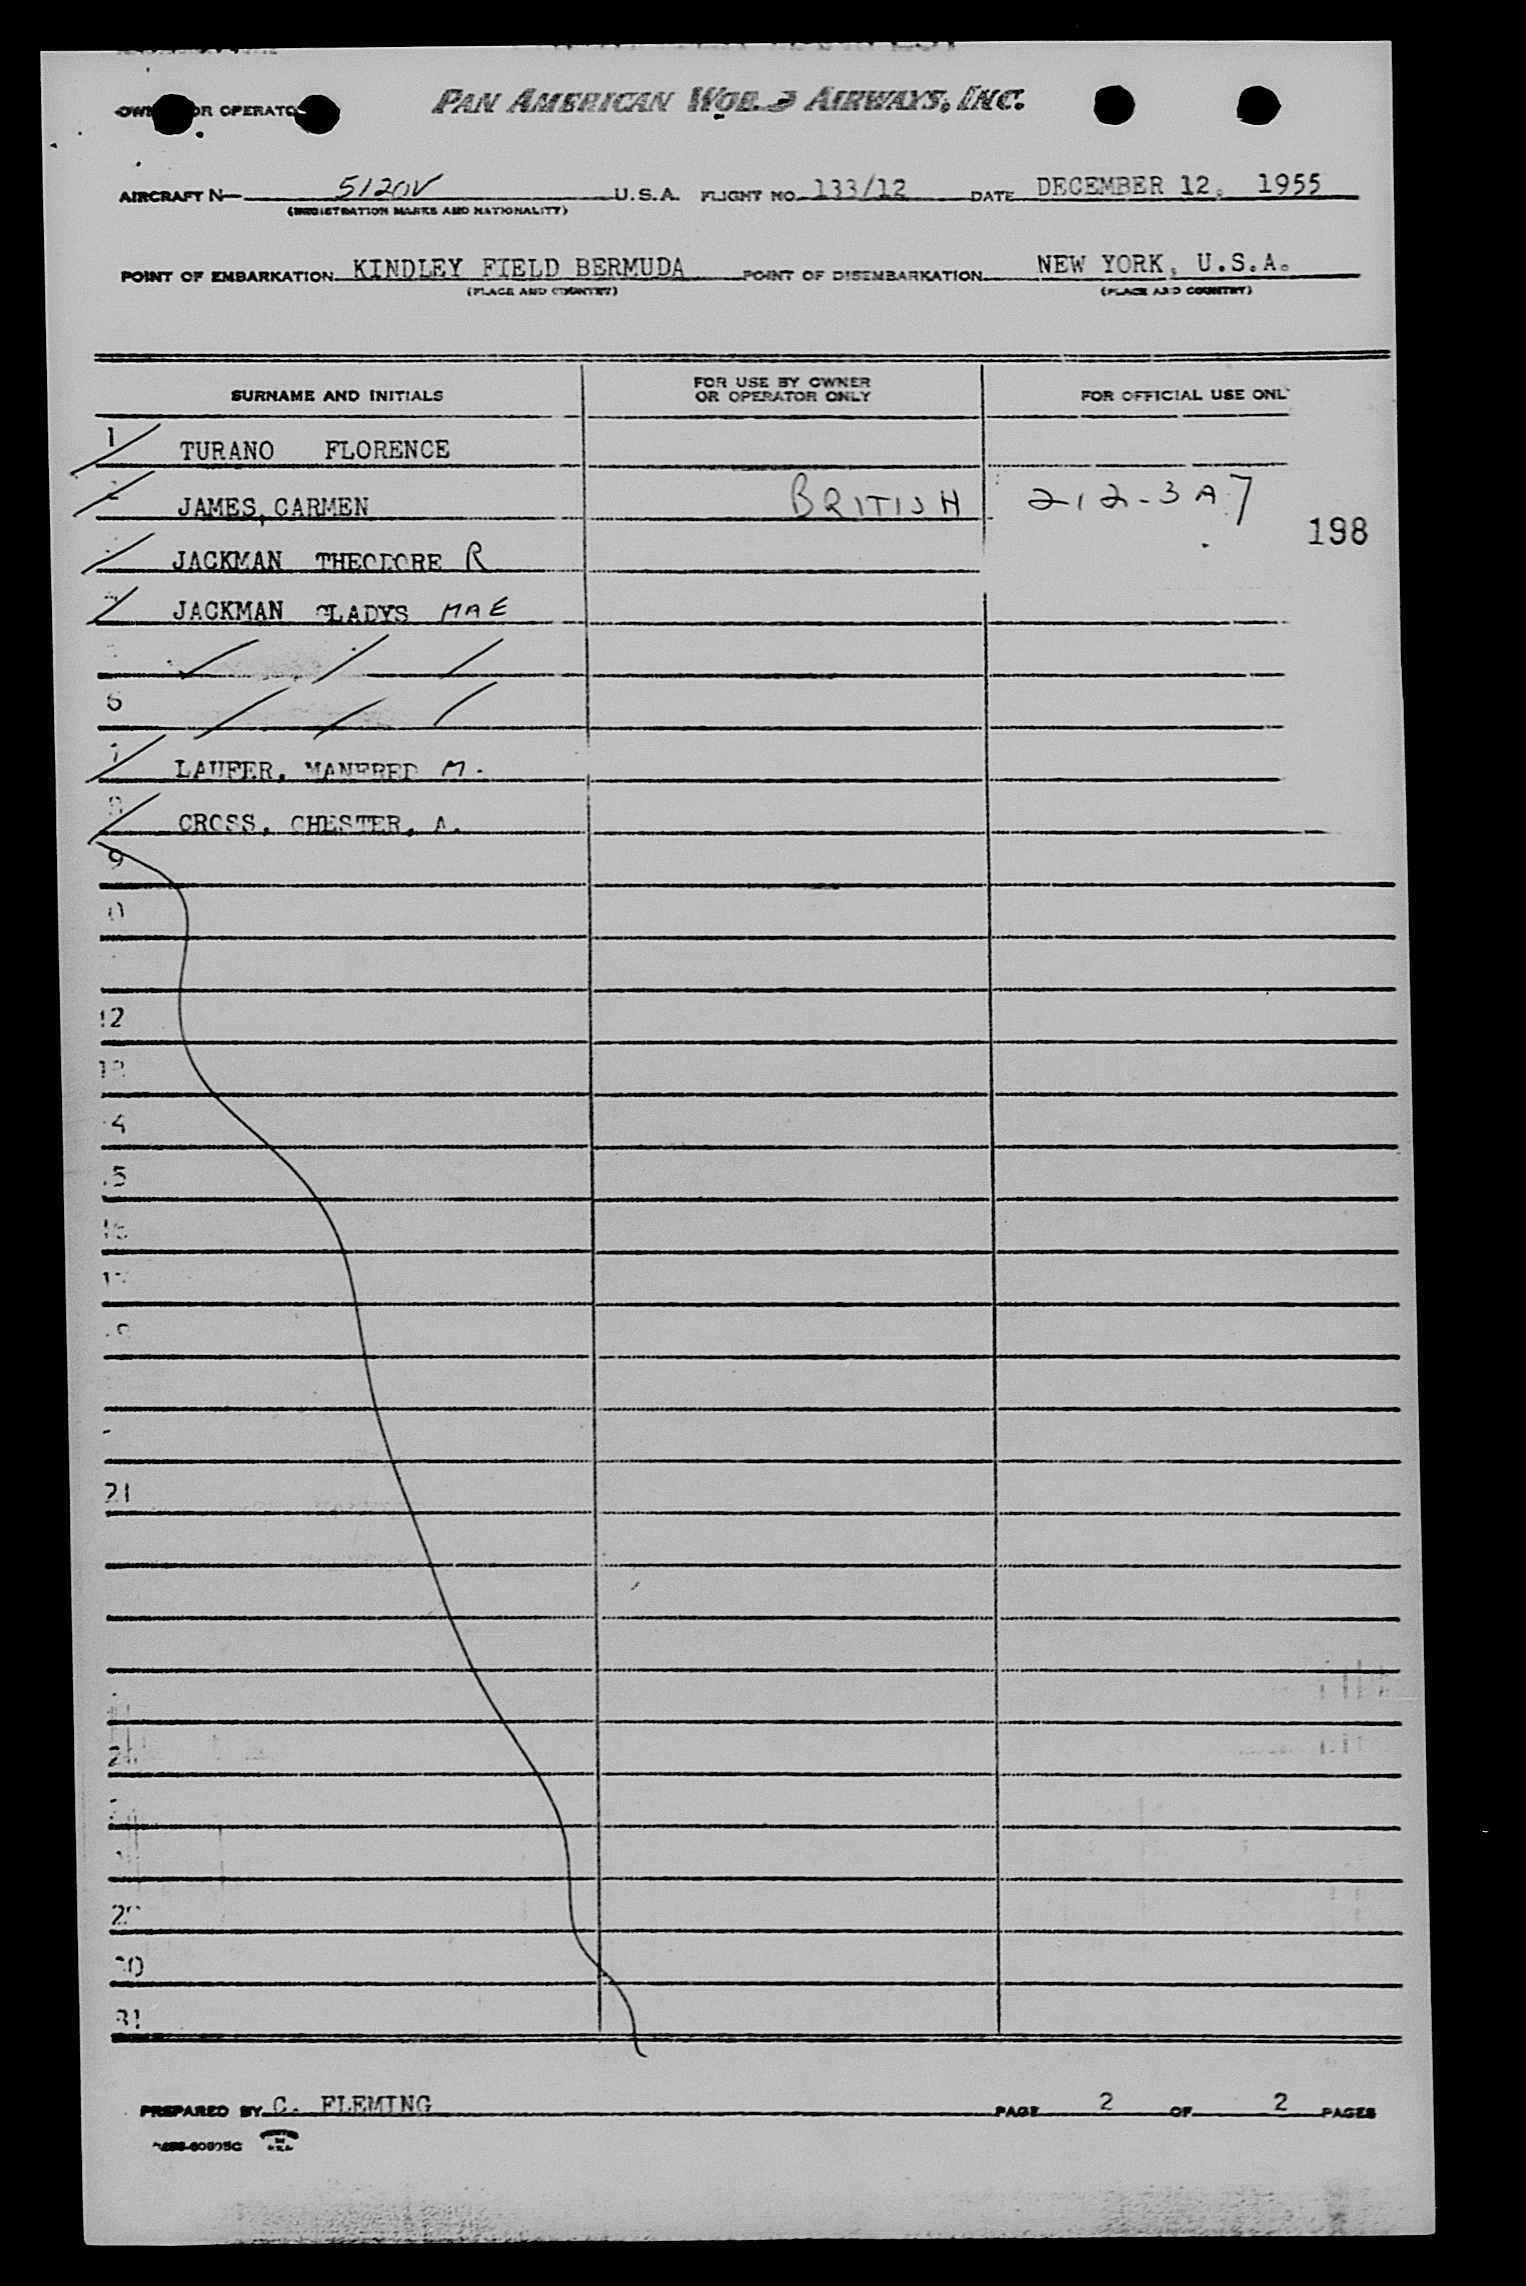 OWNER OR OPERATOR PAN AMERICAN WORLD AIRWAYS, INC.
AIRCRAFT N- 5120V U.S.A. FLIGHT NO. 133/12 DATE DECEMBER 12, 1955
(REGISTRATION MARKS AND NATIONALITY)
POINT OF EMBARKATION KINDLEY FIELD BERMUDA POINT OF DISEMBARKATION NEW YORK, U.S.A.
(PLACE AND COUNTRY) (PLACE AND COUNTRY)
SURNAME AND INITIALS FOR USE BY OWNER OR OPERATOR ONLY FOR OFFICIAL USE ONL
1 TURANO FLORENCE
JAMES, CARMEN BRITISH 212-3A7
198
JACKMAN THEODORE R
JACKMAN GLADYS MAE
6
7 LAUFER, MANFRED M.
8 CROSS, CHESTER, A.
9
0
12
13
4
5
16
17
21
2
30
31
PREPARED BY C. FLEMING PAGE 2 OF 2 PAGES